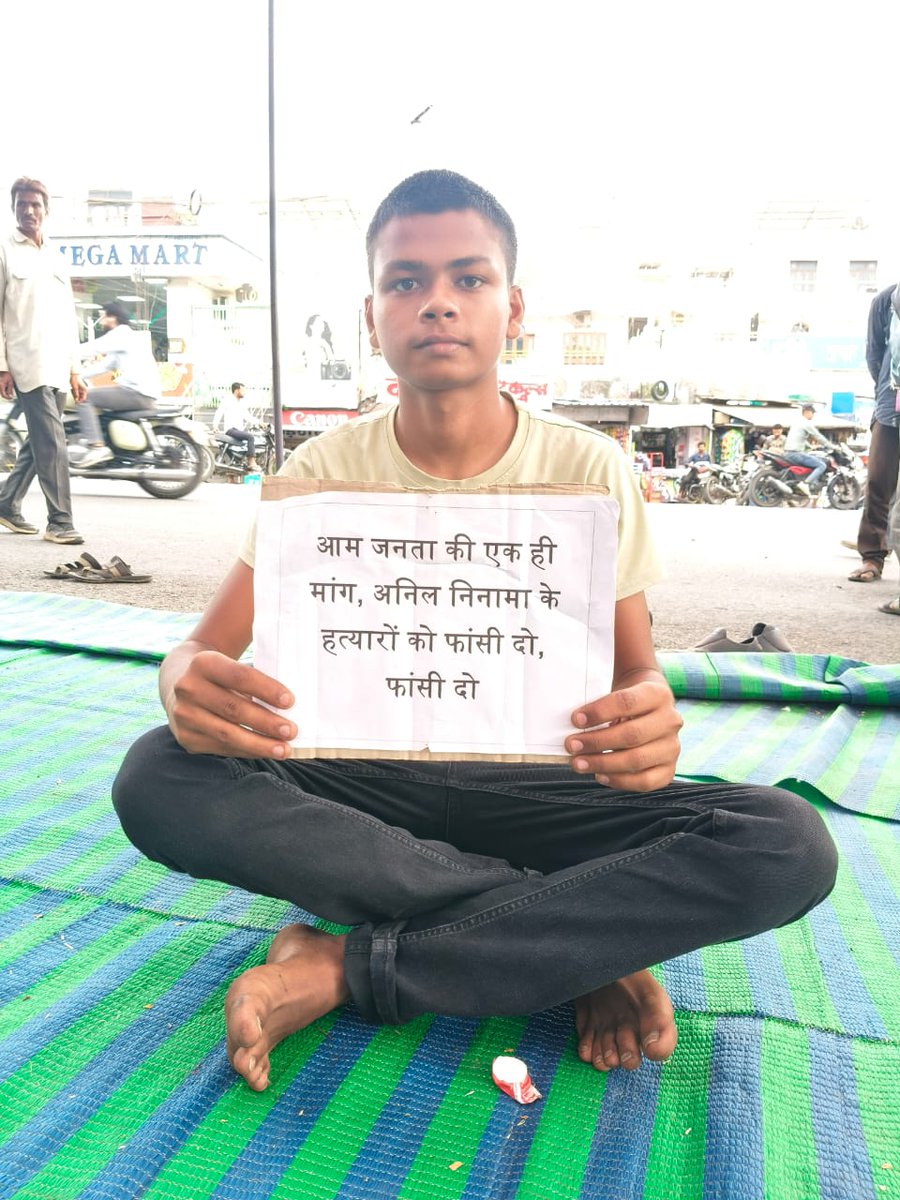 MEGA MART
CANON
आम जनता की एक ही
मांग, अनिल निनामा के
हत्यारों को फांसी दो,
फांसी दो